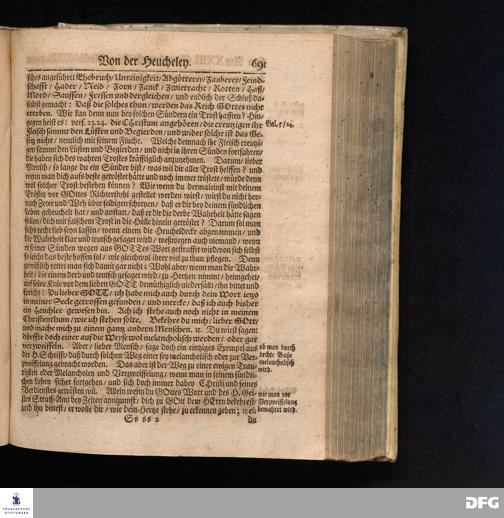 Von der Heucheley.
691
sches angeführet/Ehebruch/Unreinigkeit/Abgötterey/Zauberey/Feind-
schafft/ Hader / Neid / Zorn / Zanck / Zwietracht / Rotten / Haß/
Mord/ Sauffen/ Fressen und dergleichen/ und endlich der Schluß da-
selbst gemacht: Daß die solches thun/ werden das Reich GOttes nicht
ererben. Wie kan denn nun bey solchen Sündern ein Trost hafften? Hin-
gegen heist es: vers. 23. 24. die Christum angehören/ die creutzigen ihr
Gal. 5/24.
Fleisch sammt den Lüsten und Begierden/ und wider solche ist das Ge-
setz nicht/ nemlich mit seinem Fluche. Welche demnach ihr Fleisch creutzi-
gen sammt den Lüsten und Begierden/ und nicht in ihren Sünden fortfahren/
die haben sich des wahren Trostes kräfftiglich anzunehmen. Darum/ lieber
Mensch/ so lange du ein Sünder bist/ was wil dir aller Trost helffen? und
wenn man dich aufs beste getröstet hätte und noch immer tröstete/ würde denn
wol solcher Trost bestehen können? Wie wenn du dermaleinst mit deinem
Tröster vor GOttes Richterstuhl gestellet werden wirst/ wirst du nicht her-
nach Zeter und Weh über selbigen schreyen/ daß er dir bey deinem sündlichen
Leben geheuchelt hat/ und anstatt/ daß er dir die derbe Wahrheit hätte sagen
sollen/ dich mit falschem Trost in die Hölle hinein getröstet? Darum sol man
sichs recht lieb seyn lassen/ wenn einem die Heucheldecke abgenommen/ und
die Wahrheit klar und teusch gesaget wird/
seiner Sünden wegen aus GOTTes Wort gestraffet wird
so leicht das beste hoffen sol/ wie gleichwol ihrer viel zu thun pflegen. Denn
gewißlich rettet man sich damit gar nicht: Wohl aber/ wenn man die Wahr-
heit/ die einem derb und teutsch gesaget wird/ zu Hertzen nimmt/ heimgehet/
auf seine Knie vor dem lieben GOTT demüthiglich niederfällt/ ihn bittet und
spricht: Du lieber GOTT/ ich habe mich auch durch dein Wort ietzo
in meiner Seele getroffen gefunden/ und mercke/ daß ich auch bisher
ein Heuchler gewesen bin. Ach ich stehe auch noch nicht in meinem
Christenthum/ wie ich stehen solte. Bekehre du mich/ lieber GOtt/
und mache mich zu einem gantz andern Menschen. ꝛc. Du wirst sagen:
dürffte doch einer auf die Weise wol melancholisch werden/ oder gar
verzweiffeln. Aber/ lieber Mensch/ sage doch ein eintziges Exempel aus
der H. Schrifft/ daß durch solchen Weg einer sey melancholisch oder zur Ver-
zweiffelung gebracht worden. Das aber ist der Weg zu einer ewigen Trau-
rigkeit oder Melancholey und Verzweiffelung/ wenn man in seinem sündli-
chen Leben sicher fortgehen/ und sich doch immer dabey Christi und seines
Verdienstes getrösten wil. Allein wenn du GOttes Wort und des H. Gei-
stes Straff-Amt bey Zeiten annimmst/ dich zu GOtt dem HErrn bekehrest/
und ihn bittest/ er wolle dir/ wie dein Hertze stehe/ zu erkennen geben; weil
ob man durch
rechte Busse
melancholisch
wird.
wie man vor
Verzweiffelung
bewahret wird.
Ss ss 2
du
FRANCKESCHE
STIFTUNGEN
DFG